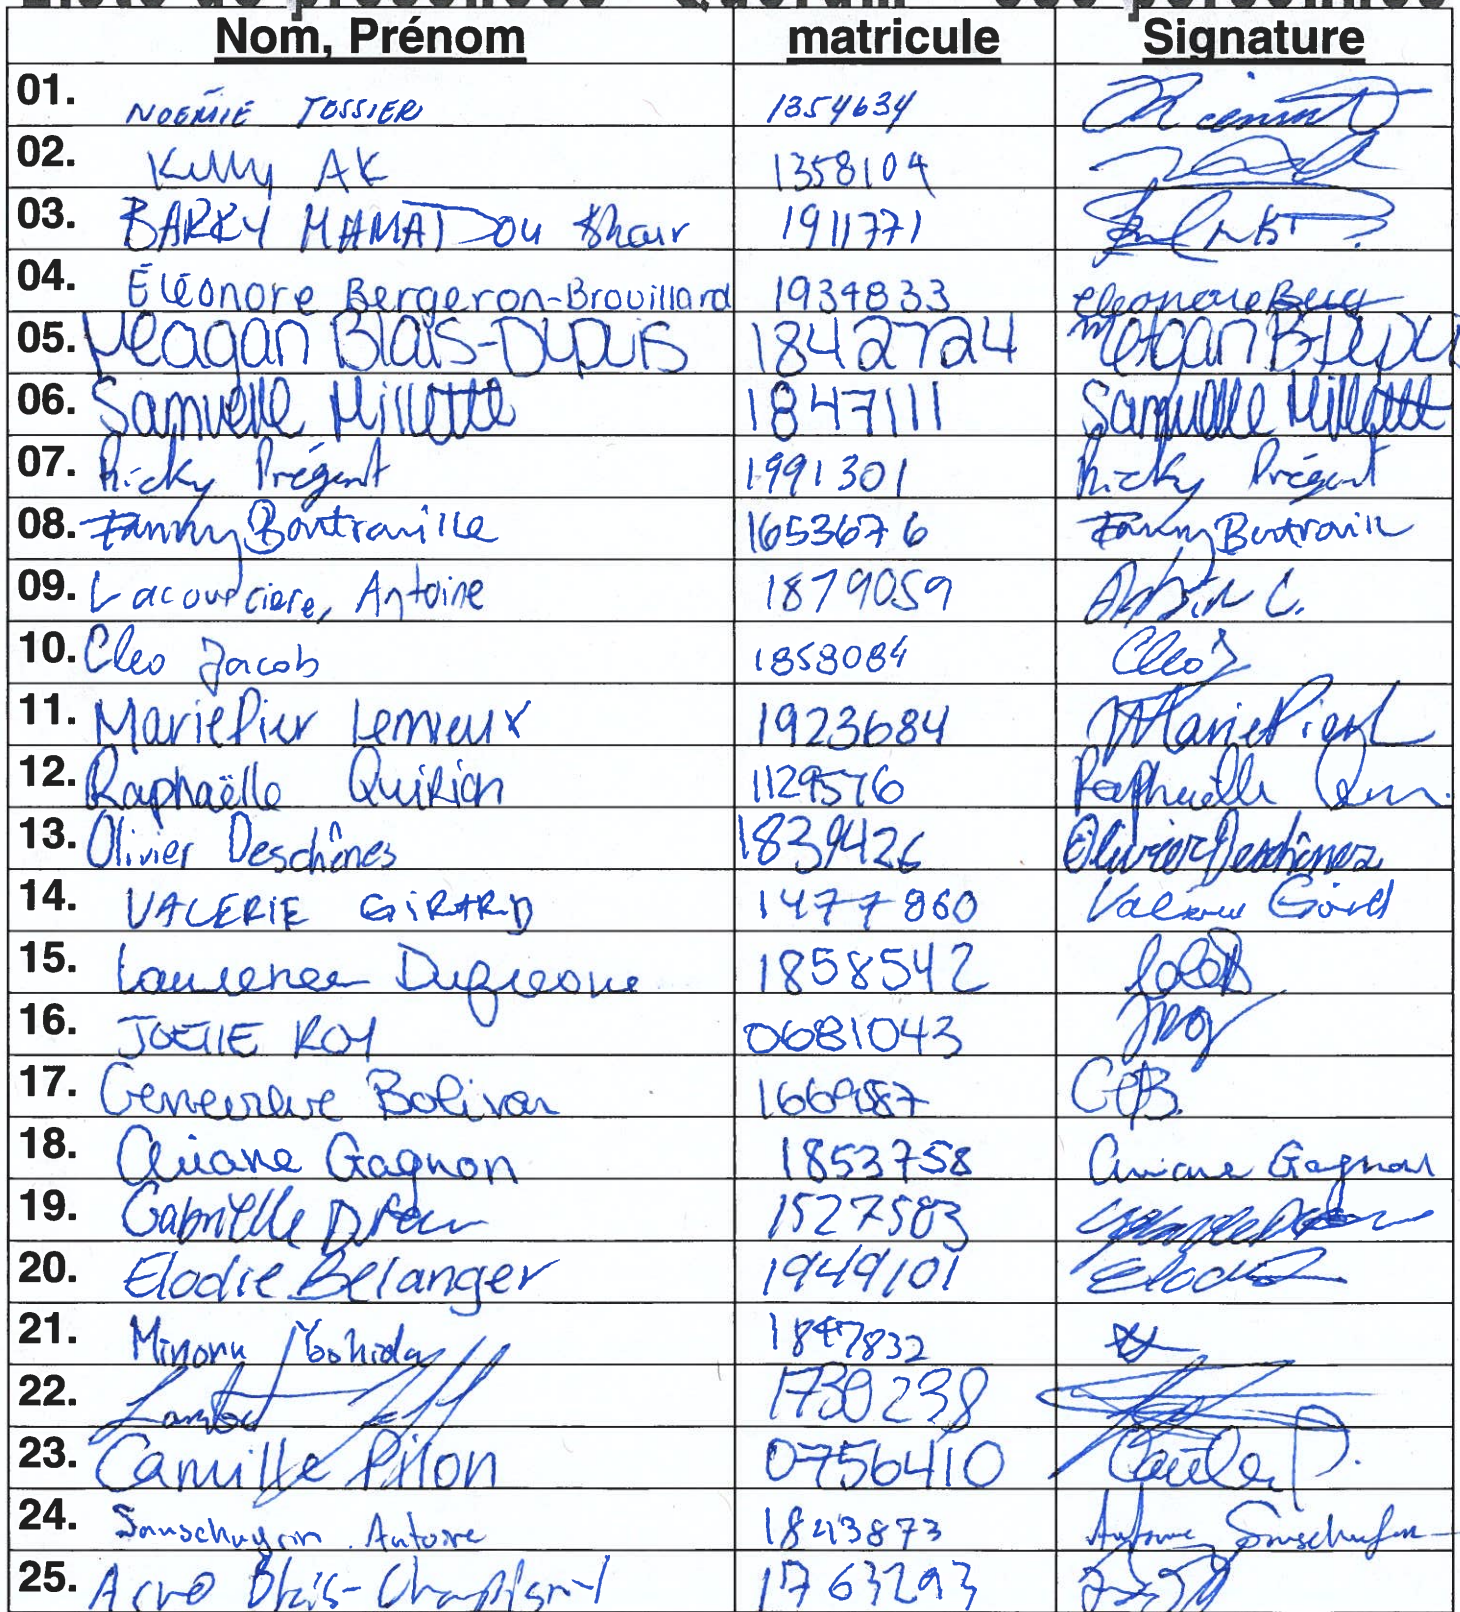 Liste de présences - Quorum = 300 personnes
Nom, Prénom matricule Signature
01. NOÉMIE TESSIER 1354634
02. Kelly AK 1358104
03. BARRY MAMADOU 1911771
04. Éléonore Bergeron-Brouillard 1934833 Eleonore Berg
05. Meagan Blais-Dupuis 1842724 Meagan B-Dupui
06. Samuelle Millette 1847111 Samuelle Millette
07. Ricky Prégent 1991301 Ricky Prégent
08. Fanny 1653676 Fanny
09. Lacoursière, Antoine 1879059
10. Cleo Jacob 1858084 Cleo J
11. MariePier Lemieux 1923684 MariePier L
12. Raphaëlle Quirion 1129576 Raphaëlle
13. Olivier Deschênes 1839426 Olivier Deschênes
14. VALERIE GIRARD 1477860 Valérie
15. Laurence Dufresne 1858542
16. JOELLE ROY 0681043 JRoy
17. Genevieve Bolivar GB.
18. Ariane Gagnon 1853758 Ariane Gagnon
19. Gabrielle 1527583
20. Elodie Belanger 1949101 Elodie
21. Minoru Yoshida 1847832
22. 1730238
23. Camille Pilon 0756410 Camille P.
24. Antoine 1843873 Antoine
25. 1763293